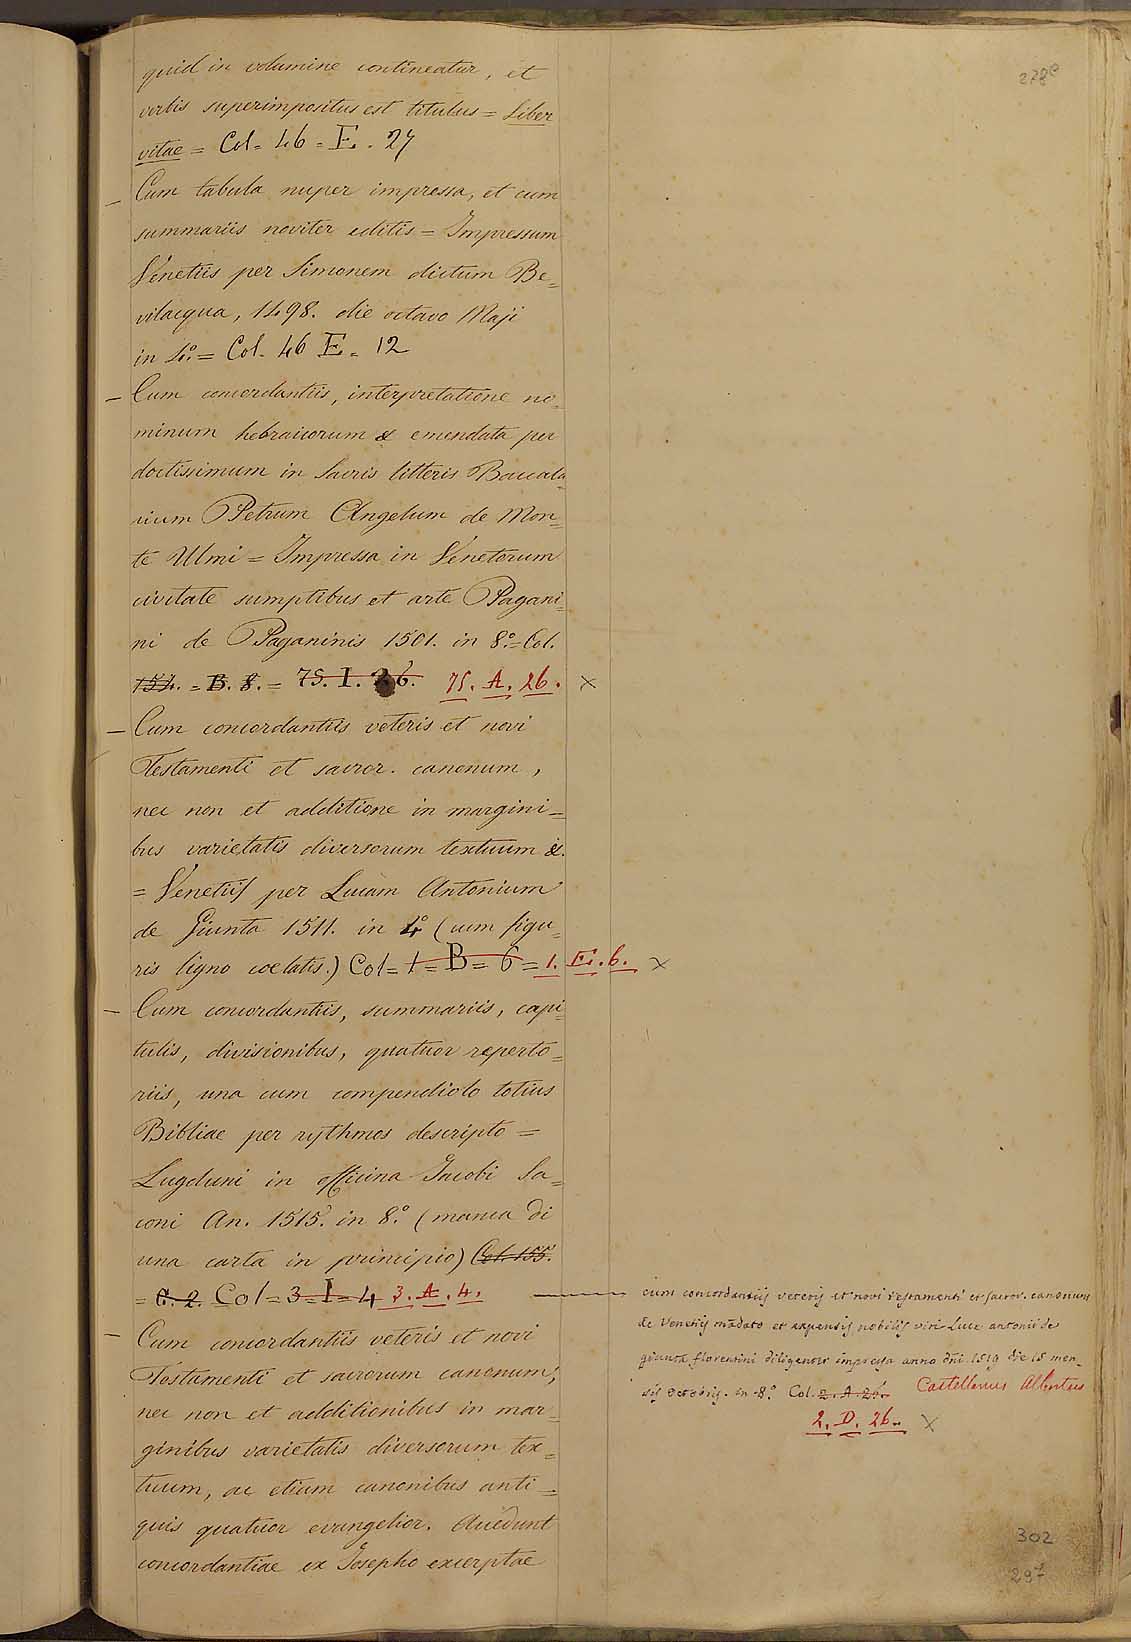 278e
quid in volumine contineatur, et
verbis superimpositus est titulus = Liber
vitae = Col. 46 = E. 27
— Cum tabula nuper impressa, et cum
summariis noviter editis = Impressum
Venetiis per Simonem dictum Be=
vilacqua, 1498. die octavo Maji
in 4.° = Col. 46 E. 12
— Cum concordantiis, interpretatione no=
minum hebraicorum & emendata per
doctissimum in Sacris litteris Baccala=
rium Petrum Angelum de Mon=
te Ulmi = Impressa in Venetorum
civitate sumptibus et arte Pagani=
ni de Paganinis 1501. in 8.° = Col.
154. = B. 8. = 75. I. 26. 75. A. 26. ×
— Cum concordantiis veteris et novi
Testamenti et sacror. canonum,
nec non et additione in margini=
bus varietatis diversorum textuum &.
= Venetiis per Lucam Antonium
de Giunta 1511. in 4° (cum figu=
ris ligno coelatis.) Col = 1 = B = 6 = 1. E. 6. ×
— Cum concordantiis, summariis, capi=
tulis, divisionibus, quatuor reperto=
riis, una cum compendiolo totius
Bibliae per rythmos descripto =
Lugduni in officina Jacobi Sa=
coni An. 1515. in 8.° (manca di
una carta in principio) Col. 155.
= C. 2. Col = 3 = I = 4 3. A. 4.
— Cum concordantiis veteris et novi
Testamenti et sacrorum canonum,
nec non et additionibus in mar=
ginibus varietatis diversorum tex=
tuum, ac etium canonibus anti=
quis quatuor evangelior. Accedunt
concordantiae ex Josepho excerptae
cum concordantiis veteris et novi testamenti et sacror. canonum
de Venetiis mādato et expensis nobilis viri Luce antonii de
giunta florentini diligenter impressa anno dni 1519 die 15 men=
sis octobris. in 8.° Col. 2. A. 26. Castellanus Albertus
2. D. 26. ×
302
297